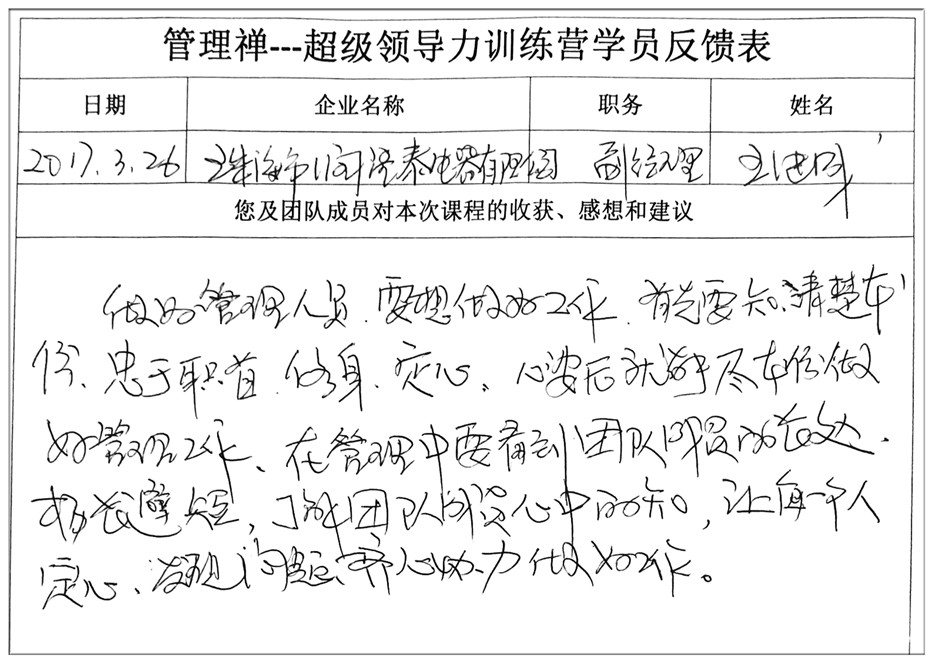 管理禅---超级领导力训练营学员反馈表
日期 企业名称 职务 姓名
2017.3.26 珠海市 泰电器有限公司 副经理 王进
您及团队成员对本次课程的收获、感想和建议
做好管理人员,要想做好工作,首先要知清楚本
份、忠于职责、修身、定心。心安后就能尽本份做
好管理工作、在管理中要看到团队成员的长处、
扬长避短,了解团队成员心中的知,让每一个人
定心、发现问题、齐心协力做好工作。